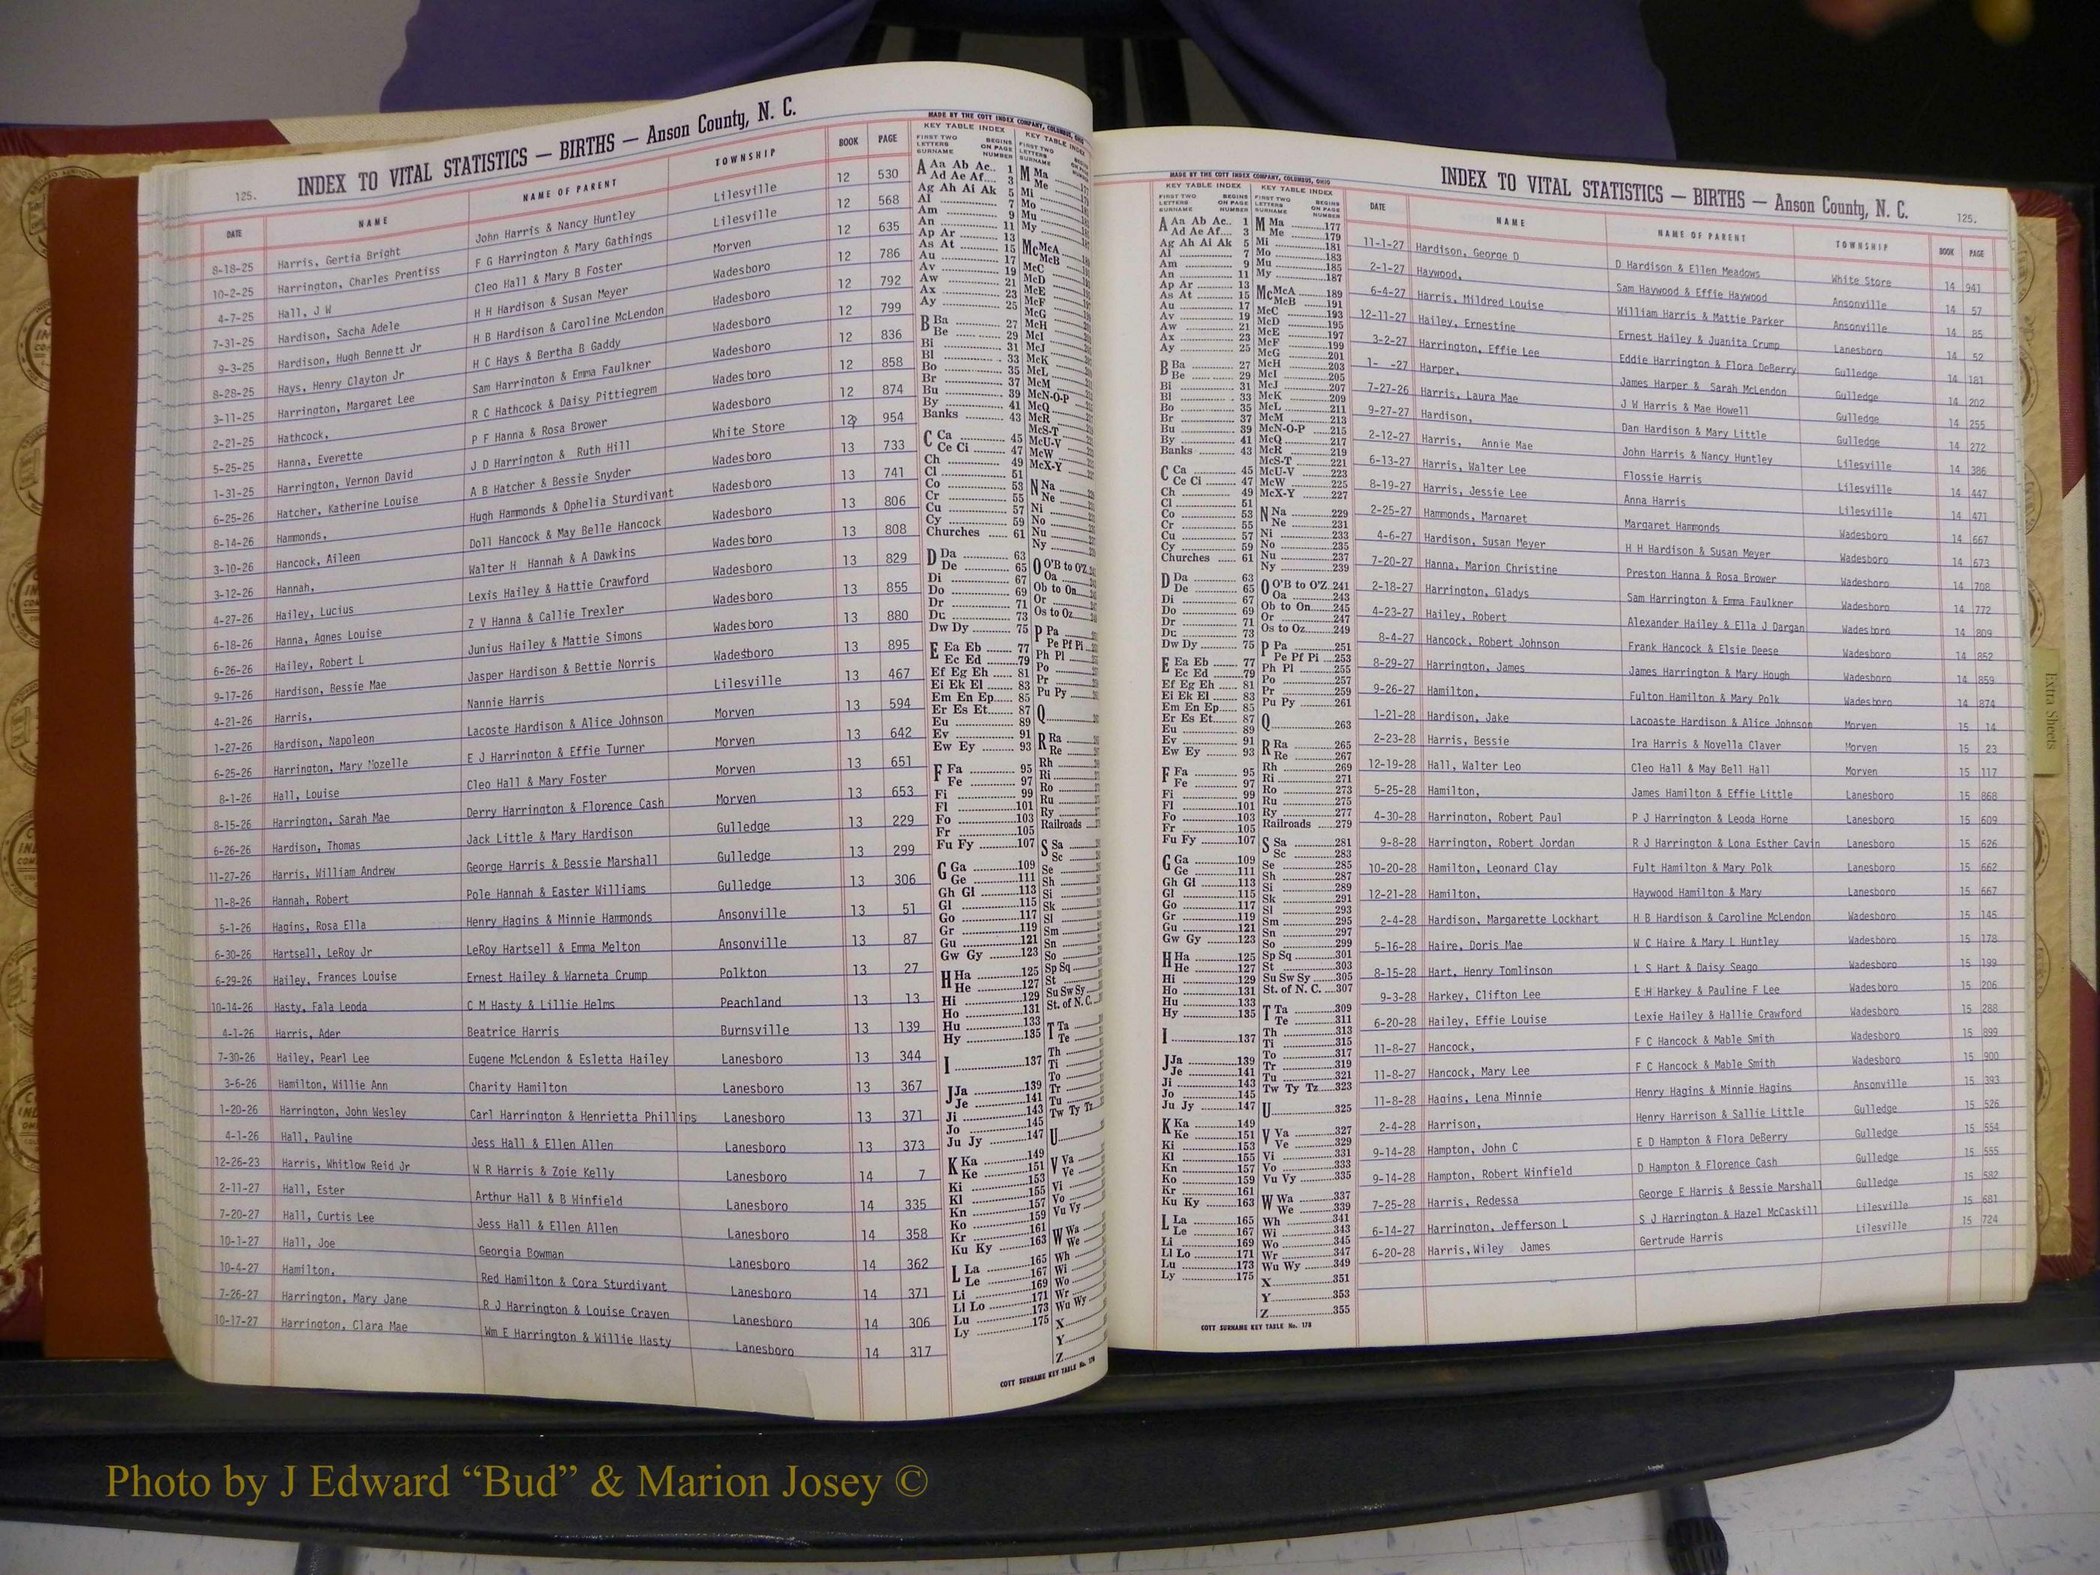 125. INDEX TO VITAL STATISTICS — BIRTHS — Anson County, N. C.
DATE NAME NAME OF PARENT TOWNSHIP BOOK PAGE
8-18-25 Harris, Gertia Bright John Harris & Nancy Huntley Lilesville 12 530
10-2-25 Harrington, Charles Prentiss F G Harrington & Mary Gathings Lilesville 12 568
4-7-25 Hall, J W Cleo Hall & Mary B Foster Morven 12 635
7-31-25 Hardison, Sacha Adele H H Hardison & Susan Meyer Wadesboro 12 786
9-3-25 Hardison, Hugh Bennett Jr H B Hardison & Caroline McLendon Wadesboro 12 792
8-28-25 Hays, Henry Clayton Jr H C Hays & Bertha B Gaddy Wadesboro 12 799
3-11-25 Harrington, Margaret Lee Sam Harrington & Emma Faulkner Wadesboro 12 836
2-21-25 Hathcock, R C Hathcock & Daisy Pittiegrem Wadesboro 12 858
5-25-25 Hanna, Everette P F Hanna & Rosa Brower Wadesboro 12 874
1-31-25 Harrington, Vernon David J D Harrington & Ruth Hill White Store 12 954
6-25-26 Hatcher, Katherine Louise A B Hatcher & Bessie Snyder Wadesboro 13 733
8-14-26 Hammonds, Hugh Hammonds & Ophelia Sturdivant Wadesboro 13 741
3-10-26 Hancock, Aileen Doll Hancock & May Belle Hancock Wadesboro 13 806
3-12-26 Hannah, Walter H Hannah & A Dawkins Wadesboro 13 808
4-27-26 Hailey, Lucius Lexis Hailey & Hattie Crawford Wadesboro 13 829
6-18-26 Hanna, Agnes Louise Z V Hanna & Callie Trexler Wadesboro 13 855
6-26-26 Hailey, Robert L Junius Hailey & Mattie Simons Wadesboro 13 880
9-17-26 Hardison, Bessie Mae Jasper Hardison & Bettie Norris Wadesboro 13 895
4-21-26 Harris, Nannie Harris Lilesville 13 467
1-27-26 Hardison, Napoleon Lacoste Hardison & Alice Johnson Morven 13 594
6-25-26 Harrington, Mary Mozelle E J Harrington & Effie Turner Morven 13 642
8-1-26 Hall, Louise Cleo Hall & Mary Foster Morven 13 651
8-15-26 Harrington, Sarah Mae Derry Harrington & Florence Cash Morven 13 653
6-26-26 Hardison, Thomas Jack Little & Mary Hardison Gulledge 13 229
11-27-26 Harris, William Andrew George Harris & Bessie Marshall Gulledge 13 299
11-8-26 Hannah, Robert Pole Hannah & Easter Williams Gulledge 13 306
5-1-26 Hagins, Rosa Ella Henry Hagins & Minnie Hammonds Ansonville 13 51
6-30-26 Hartsell, LeRoy Jr LeRoy Hartsell & Emma Melton Ansonville 13 87
6-29-26 Hailey, Frances Louise Ernest Hailey & Warneta Crump Polkton 13 27
10-14-26 Hasty, Fala Leoda C M Hasty & Lillie Helms Peachland 13 13
4-1-26 Harris, Ader Beatrice Harris Burnsville 13 139
7-30-26 Hailey, Pearl Lee Eugene McLendon & Esletta Hailey Lanesboro 13 344
3-6-26 Hamilton, Willie Ann Charity Hamilton Lanesboro 13 367
1-20-26 Harrington, John Wesley Carl Harrington & Henrietta Phillips Lanesboro 13 371
4-1-26 Hall, Pauline Jess Hall & Ellen Allen Lanesboro 13 373
12-26-23 Harris, Whitlow Reid Jr W R Harris & Zoie Kelly Lanesboro 14 7
2-11-27 Hall, Ester Arthur Hall & B Winfield Lanesboro 14 335
7-20-27 Hall, Curtis Lee Jess Hall & Ellen Allen Lanesboro 14 358
10-1-27 Hall, Joe Georgia Bowman Lanesboro 14 362
10-4-27 Hamilton, Red Hamilton & Cora Sturdivant Lanesboro 14 371
7-26-27 Harrington, Mary Jane R J Harrington & Louise Craven Lanesboro 14 306
10-17-27 Harrington, Clara Mae Wm E Harrington & Willie Hasty Lanesboro 14 317
MADE BY THE COTT INDEX COMPANY, COLUMBUS, OHIO
KEY TABLE INDEX KEY TABLE INDEX
COTT SURNAME KEY TABLE No. 178
MADE BY THE COTT INDEX COMPANY, COLUMBUS, OHIO
KEY TABLE INDEX KEY TABLE INDEX
FIRST TWO LETTERS SURNAME BEGINS ON PAGE NUMBER
A Aa Ab Ac.. 1
Ad Ae Af.... 3
Ag Ah Ai Ak 5
Al 7
Am 9
An 11
Ap Ar 13
As At 15
Au 17
Av 19
Aw 21
Ax 23
Ay 25
B Ba 27
Be 29
Bi 31
Bl 33
Bo 35
Br 37
Bu 39
By 41
Banks 43
C Ca 45
Ce Ci 47
Ch 49
Cl 51
Co 53
Cr 55
Cu 57
Cy 59
Churches 61
D Da 63
De 65
Di 67
Do 69
Dr 71
Du 73
Dw Dy 75
E Ea Eb 77
Ec Ed 79
Ef Eg Eh 81
Ei Ek El 83
Em En Ep 85
Er Es Et 87
Eu 89
Ev 91
Ew Ey 93
F Fa 95
Fe 97
Fi 99
Fl 101
Fo 103
Fr 105
Fu Fy 107
G Ga 109
Ge 111
Gh Gi 113
Gl 115
Go 117
Gr 119
Gu 121
Gw Gy 123
H Ha 125
He 127
Hi 129
Ho 131
Hu 133
Hy 135
I 137
J Ja 139
Je 141
Ji 143
Jo 145
Ju Jy 147
K Ka 149
Ke 151
Ki 153
Kl 155
Kn 157
Ko 159
Kr 161
Ku Ky 163
L La 165
Le 167
Li 169
Ll Lo 171
Lu 173
Ly 175
M Ma 177
Me 179
Mi 181
Mo 183
Mu 185
My 187
Mc McA 189
McB 191
McC 193
McD 195
McE 197
McF 199
McG 201
McH 203
McI 205
McJ 207
McK 209
McL 211
McM 213
McN-O-P 215
McQ 217
McR 219
McS-T 221
McU-V 223
McW 225
McX-Y 227
N Na 229
Ne 231
Ni 233
No 235
Nu 237
Ny 239
O O'B to O'Z 241
Oa 243
Ob to On 245
Or 247
Os to Oz 249
P Pa 251
Pe Pf Pi 253
Ph Pl 255
Po 257
Pr 259
Pu Py 261
Q 263
R Ra 265
Re 267
Rh 269
Ri 271
Ro 273
Ru 275
Ry 277
Railroads 279
S Sa 281
Sc 283
Se 285
Sh 287
Si 289
Sk 291
Sl 293
Sm 295
Sn 297
So 299
Sp Sq 301
St 303
Su Sw Sy 305
St. of N. C. 307
T Ta 309
Te 311
Th 313
Ti 315
To 317
Tr 319
Tu 321
Tw Ty Tz 323
U 325
V Va 327
Ve 329
Vi 331
Vo 333
Vu Vy 335
W Wa 337
We 339
Wh 341
Wi 343
Wo 345
Wr 347
Wu Wy 349
X 351
Y 353
Z 355
COTT SURNAME KEY TABLE No. 178
INDEX TO VITAL STATISTICS — BIRTHS — Anson County, N. C. 125.
DATE NAME NAME OF PARENT TOWNSHIP BOOK PAGE
11-1-27 Hardison, George D D Hardison & Ellen Meadows White Store 14 941
2-1-27 Haywood, Sam Haywood & Effie Haywood Ansonville 14 57
6-4-27 Harris, Mildred Louise William Harris & Mattie Parker Ansonville 14 85
12-11-27 Hailey, Ernestine Ernest Hailey & Juanita Crump Lanesboro 14 52
3-2-27 Harrington, Effie Lee Eddie Harrington & Flora DeBerry Gulledge 14 181
1- -27 Harper, James Harper & Sarah McLendon Gulledge 14 202
7-27-26 Harris, Laura Mae J W Harris & Mae Howell Gulledge 14 255
9-27-27 Hardison, Dan Hardison & Mary Little Gulledge 14 272
2-12-27 Harris, Annie Mae John Harris & Nancy Huntley Lilesville 14 386
6-13-27 Harris, Walter Lee Flossie Harris Lilesville 14 447
8-19-27 Harris, Jessie Lee Anna Harris Lilesville 14 471
2-25-27 Hammonds, Margaret Margaret Hammonds Wadesboro 14 667
4-6-27 Hardison, Susan Meyer H H Hardison & Susan Meyer Wadesboro 14 673
7-20-27 Hanna, Marion Christine Preston Hanna & Rosa Brower Wadesboro 14 708
2-18-27 Harrington, Gladys Sam Harrington & Emma Faulkner Wadesboro 14 772
4-23-27 Hailey, Robert Alexander Hailey & Ella J Dargan Wadesboro 14 809
8-4-27 Hancock, Robert Johnson Frank Hancock & Elsie Deese Wadesboro 14 852
8-29-27 Harrington, James James Harrington & Mary Hough Wadesboro 14 859
9-26-27 Hamilton, Fulton Hamilton & Mary Polk Wadesboro 14 874
1-21-28 Hardison, Jake Lacoaste Hardison & Alice Johnson Morven 15 14
2-23-28 Harris, Bessie Ira Harris & Novella Claver Morven 15 23
12-19-28 Hall, Walter Leo Cleo Hall & May Bell Hall Morven 15 117
5-25-28 Hamilton, James Hamilton & Effie Little Lanesboro 15 868
4-30-28 Harrington, Robert Paul P J Harrington & Leoda Horne Lanesboro 15 609
9-8-28 Harrington, Robert Jordan R J Harrington & Lona Esther Cavin Lanesboro 15 626
10-20-28 Hamilton, Leonard Clay Fult Hamilton & Mary Polk Lanesboro 15 662
12-21-28 Hamilton, Haywood Hamilton & Mary Lanesboro 15 667
2-4-28 Hardison, Margarette Lockhart H B Hardison & Caroline McLendon Wadesboro 15 145
5-16-28 Haire, Doris Mae W C Haire & Mary L Huntley Wadesboro 15 178
8-15-28 Hart, Henry Tomlinson L S Hart & Daisy Seago Wadesboro 15 199
9-3-28 Harkey, Clifton Lee E H Harkey & Pauline F Lee Wadesboro 15 206
6-20-28 Hailey, Effie Louise Lexie Hailey & Hallie Crawford Wadesboro 15 288
11-8-27 Hancock, F C Hancock & Mable Smith Wadesboro 15 899
11-8-27 Hancock, Mary Lee F C Hancock & Mable Smith Wadesboro 15 900
11-8-28 Hagins, Lena Minnie Henry Hagins & Minnie Hagins Ansonville 15 393
2-4-28 Harrison, Henry Harrison & Sallie Little Gulledge 15 526
9-14-28 Hampton, John C E D Hampton & Flora DeBerry Gulledge 15 554
9-14-28 Hampton, Robert Winfield D Hampton & Florence Cash Gulledge 15 555
7-25-28 Harris, Redessa George E Harris & Bessie Marshall Gulledge 15 582
6-14-27 Harrington, Jefferson L S J Harrington & Hazel McCaskill Lilesville 15 681
6-20-28 Harris, Wiley James Gertrude Harris Lilesville 15 724
Extra Sheets
Photo by J Edward “Bud” & Marion Josey ©